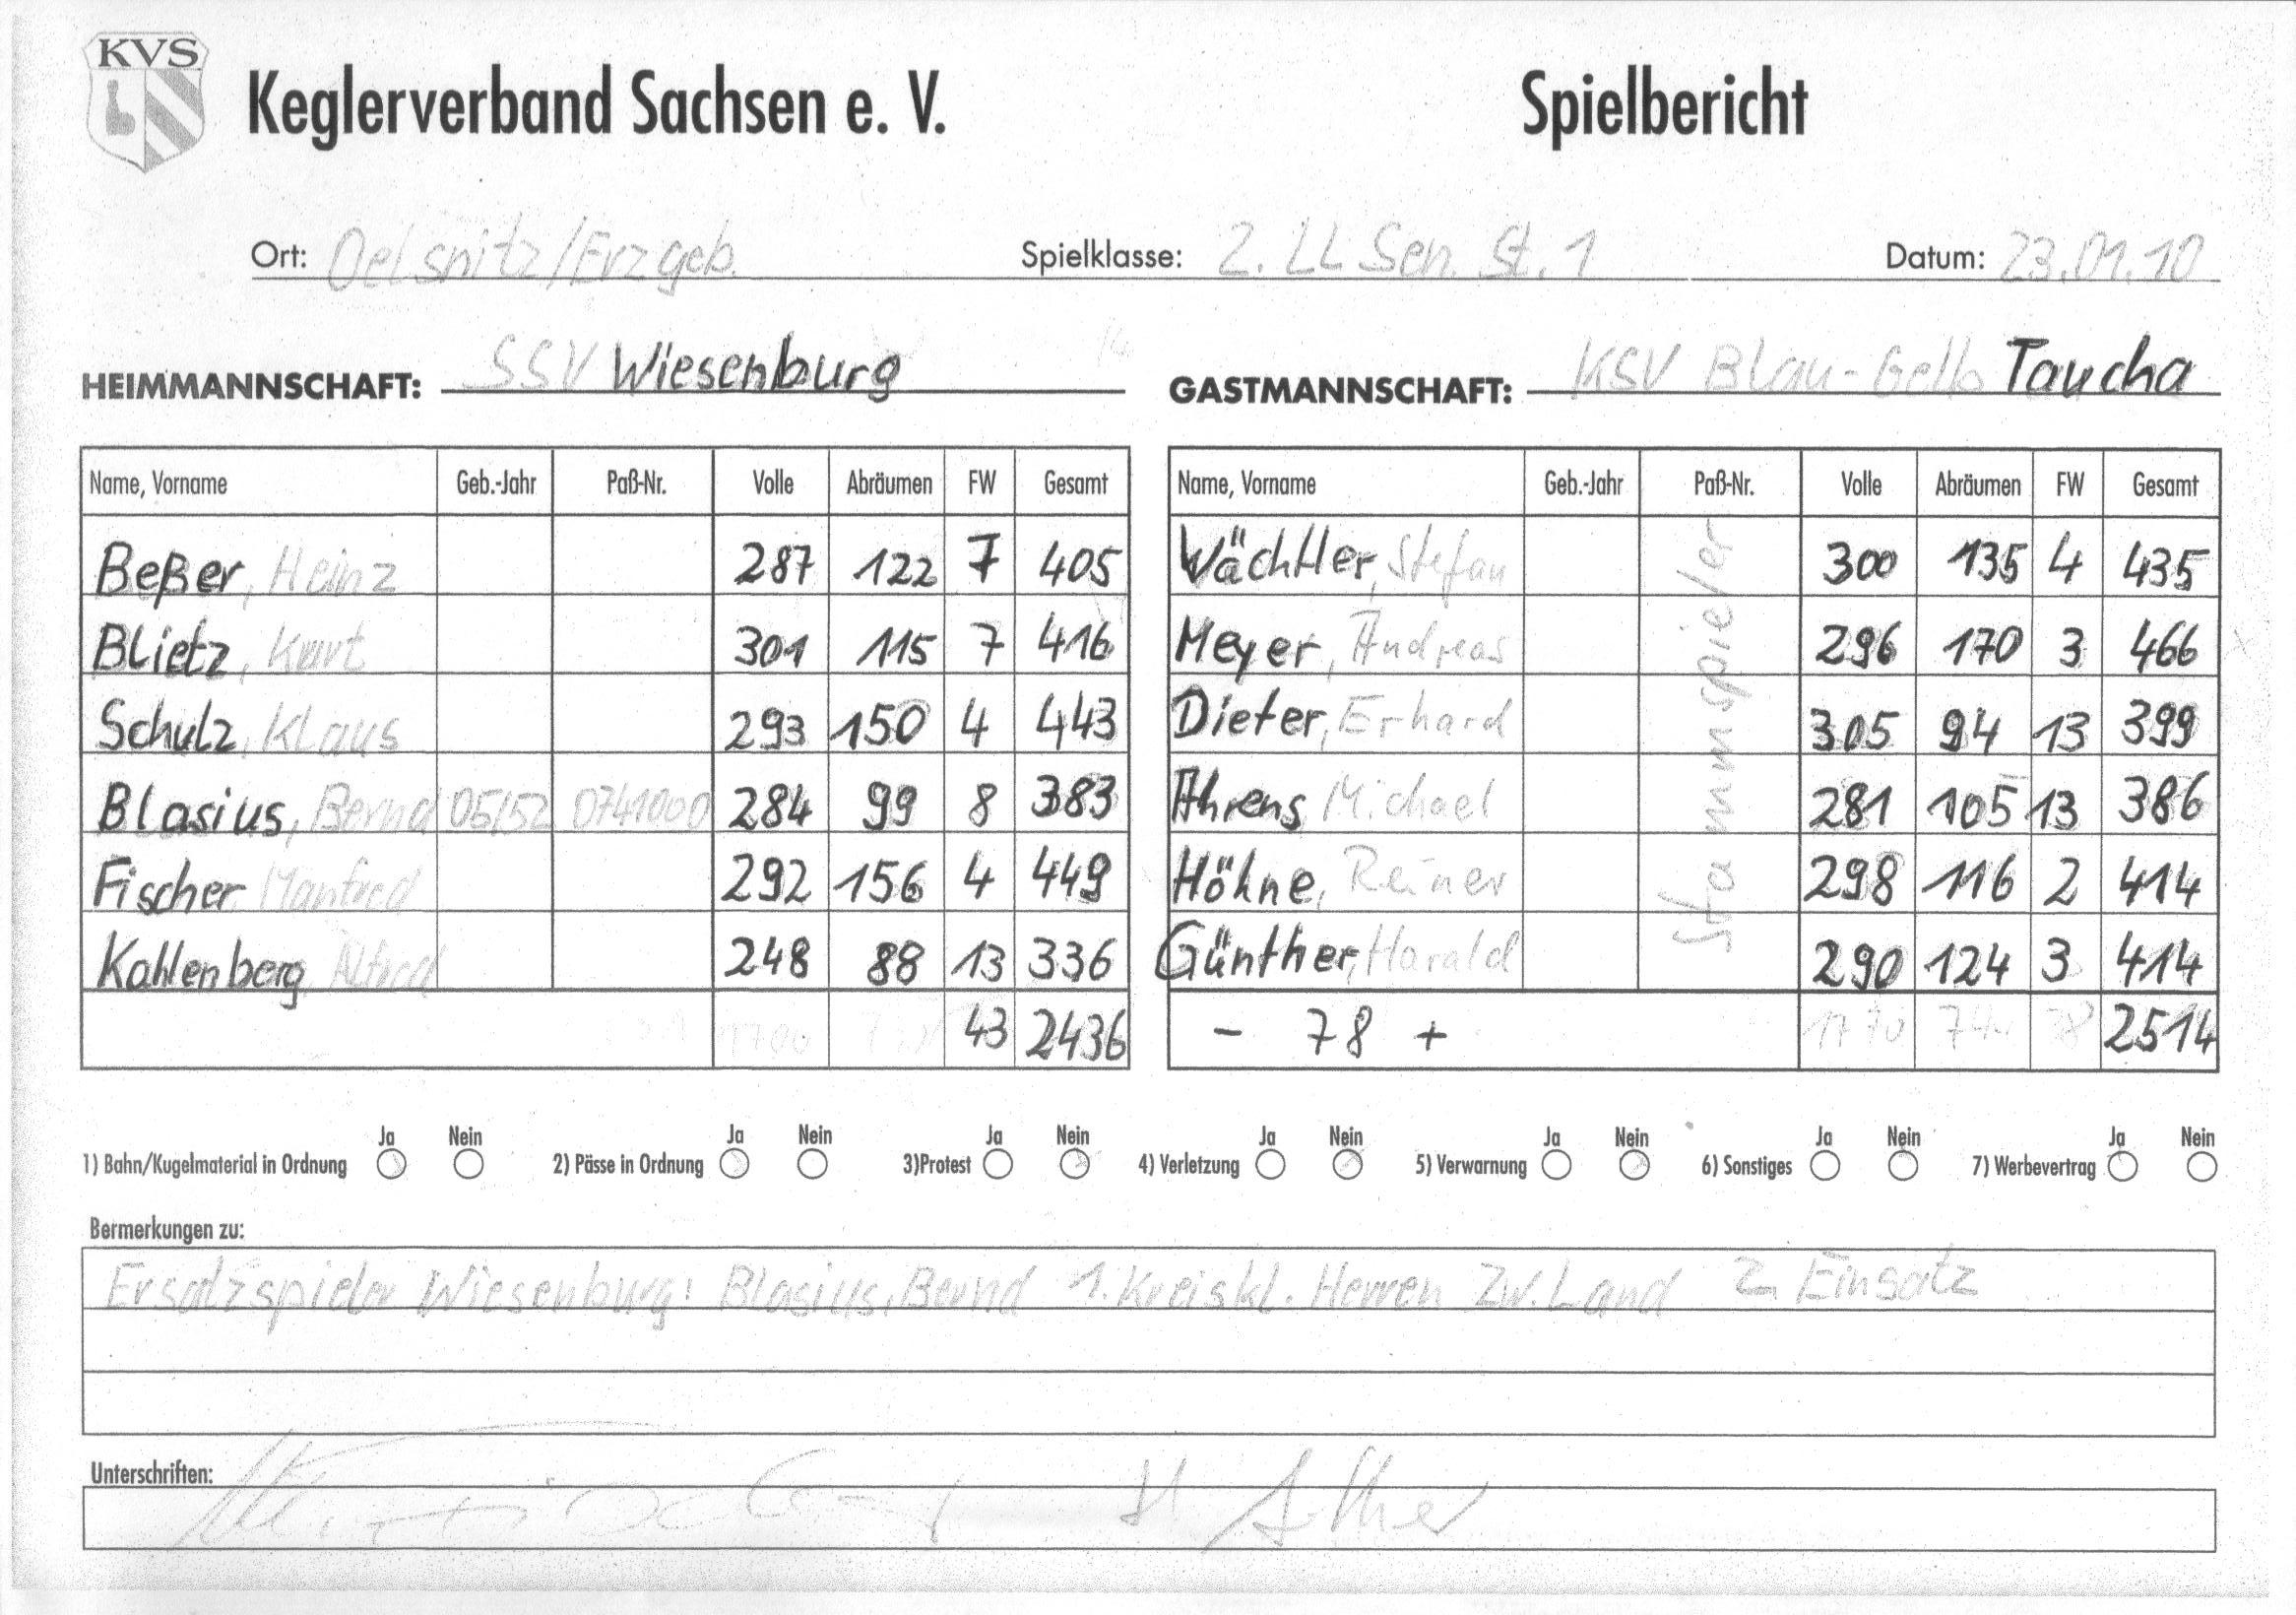 KVS
Keglerverband Sachsen e. V. Spielbericht
Ort: Oelsnitz/Erzgeb. Spielklasse: 2. LL Sen. St. 1 Datum: 23.01.10
HEIMMANNSCHAFT: SSV Wiesenburg GASTMANNSCHAFT: KSV Blau-Gelb Taucha
Name, Vorname Geb.-Jahr Paß-Nr. Volle Abräumen FW Gesamt Name, Vorname Geb.-Jahr Paß-Nr. Volle Abräumen FW Gesamt
Beßer, Heinz 287 122 7 405 Wächtler, Stefan 300 135 4 435
Blietz, Kurt 301 115 7 416 Meyer, Andreas 296 170 3 466
Schulz, Klaus 293 150 4 443 Dieter, Erhard 305 94 13 399
Blasius, Bernd 05/52 0741000 284 99 8 383 Ahrens, Michael 281 105 13 386
Fischer Manfred 292 156 4 449 Höhne, Reiner 298 116 2 414
Kahlenberg, Alfred 248 88 13 336 Günther, Harald 290 124 3 414
Stammspieler
43 2436 - 78 + 1770 38 2514
Ja Nein Ja Nein Ja Nein Ja Nein Ja Nein Ja Nein Ja Nein
1) Bahn/Kugelmaterial in Ordnung 2) Pässe in Ordnung 3)Protest 4) Verletzung 5) Verwarnung 6) Sonstiges 7) Werbevertrag
Bermerkungen zu:
Ersatzspieler Wiesenburg: Blasius, Bernd 1. Kreiskl. Herren Zw. Land 2. Einsatz
Unterschriften: